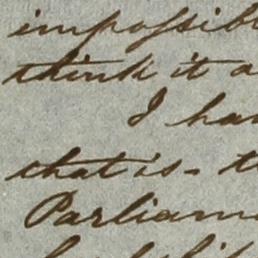 impossibl
think it a
I ha
that is. t
Parliam